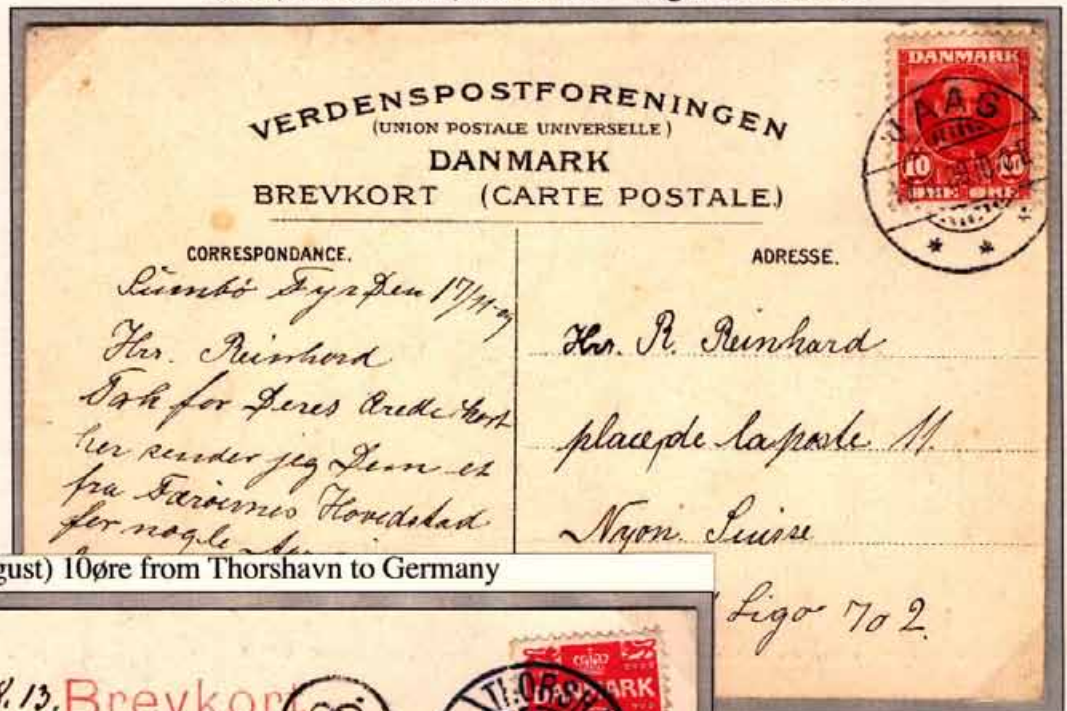 VERDENSPOSTFORENINGEN
(UNION POSTALE UNIVERSELLE)
DANMARK
BREVKORT (CARTE POSTALE.)
DANMARK
10 10
ØRE ØRE
VAAG
CORRESPONDANCE.
Sumbö Fyr Den 17/11-09
Hrr. Reinhard
Tak for Deres ærede kort
her sender jeg Dem et
fra Færöernes Hovedstad
for nogle
ADRESSE.
Hrr. R. Reinhard
place de la poste 11.
Nyon. Suisse
Ligo 702.
gust) 10øre from Thorshavn to Germany
8.13. Brevkort
THORSH
DANMARK